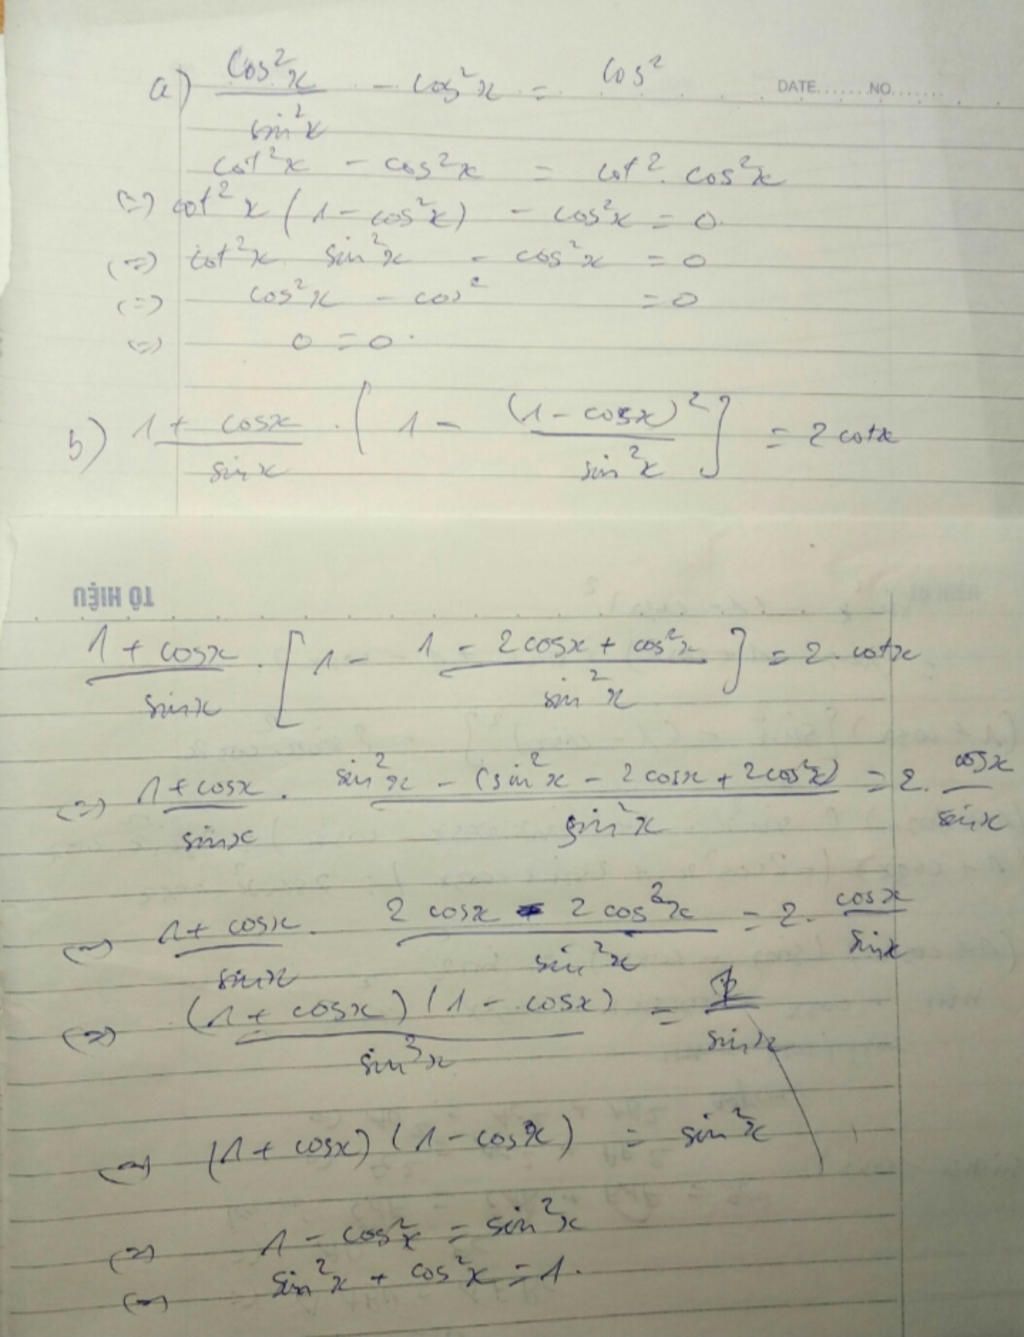 a) cos²x / sin²x - cos²x = cos²
DATE.......NO.......
cot²x - cos²x = cot². cos²x
(=) cot²x (1 - cos²x) - cos²x = 0
(=) cot²x. sin²x - cos²x = 0
(=) cos²x - cos² = 0
(=) 0 = 0.
b) 1 + cosx / sinx . [ 1 - (1 - cosx)² / sin²x ] = 2 cotx
TÔ HIỆU
1 + cosx / sinx . [ 1 - 1 - 2cosx + cos²x / sin²x ] = 2. cotx
(=) 1 + cosx / sinx . sin²x - (sin²x - 2cosx + 2cos²x) / sin²x = 2. cosx / sinx
(=) 1 + cosx / sinx . 2 cosx - 2 cos²x / sin²x = 2. cosx / sinx
(=) (1 + cosx) (1 - cosx) / sin³x = 1 / sinx
(=) (1 + cosx) (1 - cosx) = sin²x
(=) 1 - cos²x = sin²x
(=) sin²x + cos²x = 1.